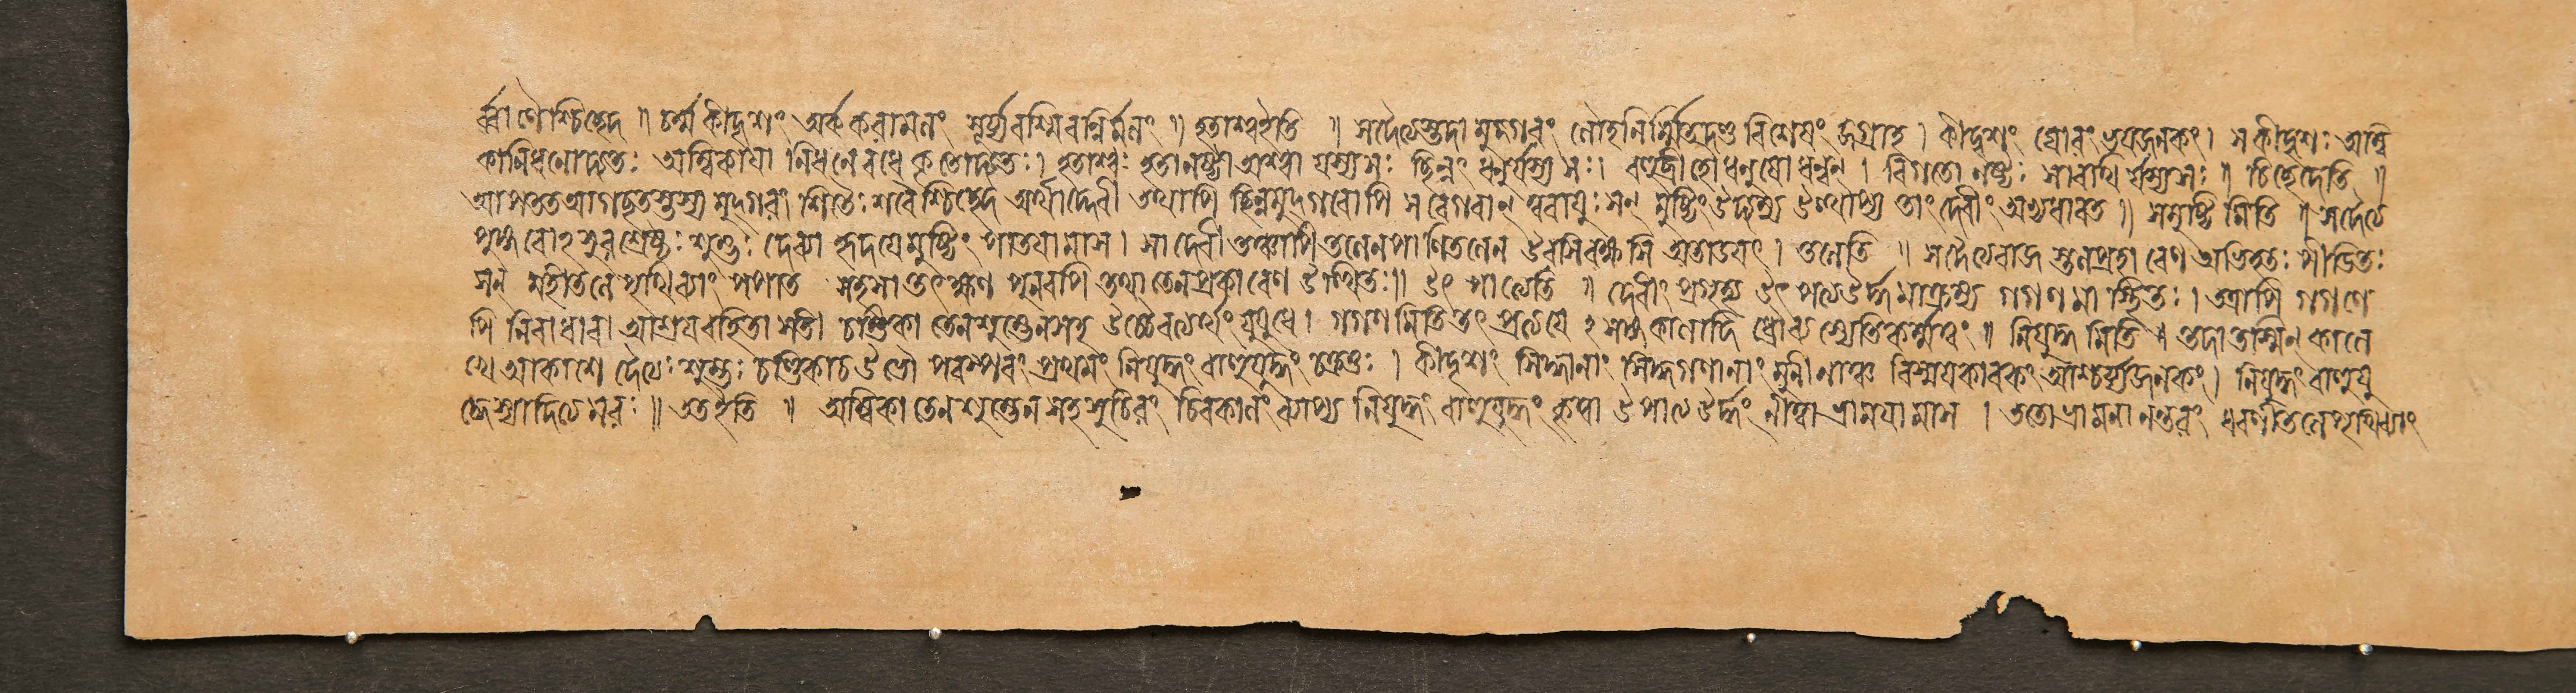 র্ব্বাণৈশ্চিচ্ছেদ ॥ চর্ম্ম কীদৃশং অর্ককরামলং সূর্য্যরশ্মিবন্নির্মলং ॥ হতাশ্বইতি ॥ সদৈত্যস্তদা মুদ্গরং লৌহনির্মিতদণ্ড বিশেষং জগ্রাহ । কীদৃশং ঘোরং ভয়জনকং । স কীদৃশঃ অম্বি
কানিধনোদ্যতঃ অম্বিকায়া নিধনে বধে কৃতোদ্যতঃ । হতাশ্বঃ হতা নষ্টা অশ্বা যস্য সঃ ছিন্নং ধনুর্যস্য সঃ । ধনুষো ধন্বন্ । বিগতো নষ্টঃ সারথি র্যস্য সঃ ॥ চিচ্ছেদেতি ॥
আপততআগচ্ছতস্তস্য মুদ্গরং শিতৈঃ শরৈশ্চিচ্ছেদ অর্থাদ্দেবী তথাপি ছিন্নমুদ্গরোপি স বেগবান্ ত্বরাযুঃ সন্ মুষ্টিং উদ্যম্য উত্থাপ্য তাং দেবীং অভ্যধাবত ॥ সমুষ্টি মিতি ॥ সদৈত্য
পুঙ্গবোঽসুরশ্রেষ্ঠঃ শুম্ভঃ দেব্যা হৃদয়ে মুষ্টিং পাতয়ামাস । সা দেবী তঞ্চাপি তলেনপাণিতলেন উরসিবক্ষসি অতাডয়ৎ । তলেতি ॥ সদৈত্যরাজ স্তলপ্রহারেণ অভিহতঃ পীডিতঃ
সন্ মহীতলে পৃথিব্যাং পপাত সহসা তৎক্ষণ পুনরপি তথা তেনপ্রকারেণ উত্থিতঃ ॥ উৎপাত্যেতি ॥ দেবীং প্রগৃহ্য উৎপত্যঊর্দ্ধমাক্রম্য গগণমাস্থিতঃ । তত্রাপি গগণে
পি নিরাধারা আশ্রয়রহিতা সতী চণ্ডিকা তেনশুম্ভেনসহ যুযুধে । গগণ মিতি ॥ নিযুদ্ধ মিতি ॥ তদা তস্মিন্ কালে
খে আকাশে দৈত্যঃ শুম্ভঃ চণ্ডিকাচ উভৌ পরস্পরং প্রথমং নিযুদ্ধং বাহুযুদ্ধং চক্রতুঃ । কীদৃশং সিদ্ধানাং সিদ্ধগণানাং মুনীনাঞ্চ বিস্ময়কারকং আশ্চর্য্যজনকং । নিযুদ্ধং বাহুযু
দ্ধেস্যাদিত্যমরঃ ॥ ততইতি ॥ অম্বিকা তেন শুম্ভেন সহ সুচিরং চিরকালং ব্যাপ্য নিযুদ্ধং বাহুযুদ্ধং কৃত্বা উৎপাত্য ঊর্দ্ধং নীত্বা ভ্রাময়ামাস । ততো ভ্রামনানন্তরং ধরণীতলে পৃথিব্যাং